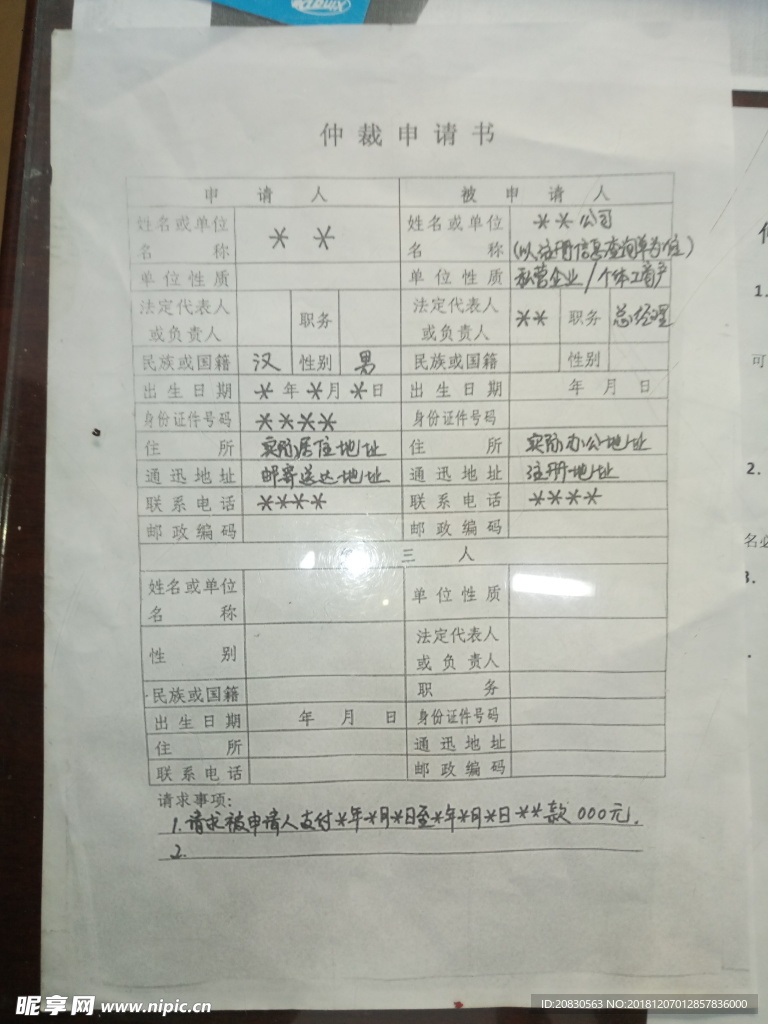 仲裁申请书
申请人 被申请人
姓名或单位名称 ** 姓名或单位名称 **公司(以注册信息查询单为准)
单位性质 单位性质 私营企业/个体工商户
法定代表人或负责人 职务 法定代表人或负责人 ** 职务 总经理
民族或国籍 汉 性别 男 民族或国籍 性别
出生日期 *年*月*日 出生日期 年 月 日
身份证件号码 **** 身份证件号码
住所 实际居住地址 住所 实际办公地址
通迅地址 邮寄送达地址 通迅地址 注册地址
联系电话 **** 联系电话 ****
邮政编码 邮政编码
三人
姓名或单位名称 单位性质
性别 法定代表人或负责人
民族或国籍 职务
出生日期 年 月 日 身份证件号码
住所 通迅地址
联系电话 邮政编码
请求事项:
1.请求被申请人支付*年*月*日至*年*月*日**款000元.
2.
1.
可
2.
昵享网 www.nipic.cn
ID:20830563 NO:20181207012857836000